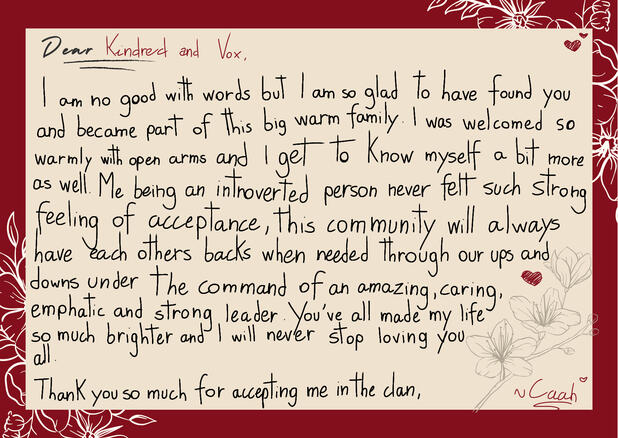 Dear Kindred and Vox,
I am no good with words but I am so glad to have found you
and became part of this big warm family. I was welcomed so
warmly with open arms and I get to know myself a bit more
as well. Me being an introverted person never felt such strong
feeling of acceptance, this community will always
have each others backs when needed through our ups and
downs under the command of an amazing, caring,
emphatic and strong leader. You've all made my life
so much brighter and I will never stop loving you
all.
Thank you so much for accepting me in the clan,
~Caah